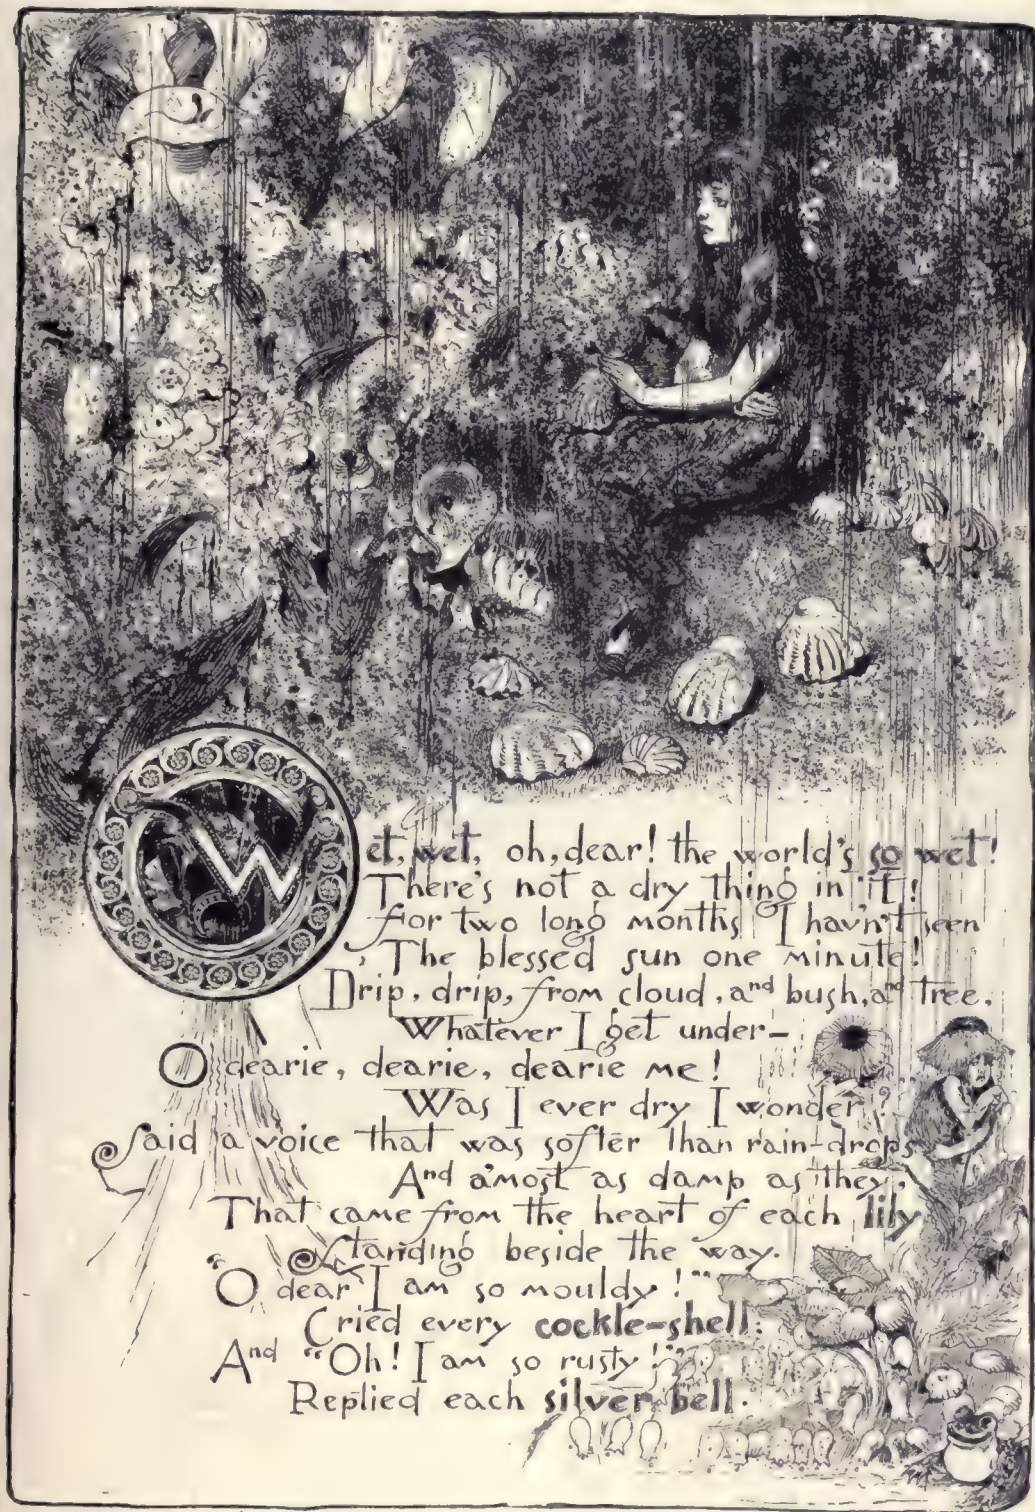 Wet, wet, oh, dear! the world's so wet!
There's not a dry thing in it!
For two long months I hav'n't seen
The blessed sun one minute!
Drip, drip, from cloud, and bush, and tree,
Whatever I get under–
O dearie, dearie, dearie me!
Was I ever dry I wonder?
Said a voice that was softer than rain-drops
And a'most as damp as they,
That came from the heart of each lily
Standing beside the way.
"O dear I am so mouldy!"
Cried every cockle-shell:
And "Oh! I am so rusty!"
Replied each silver bell.